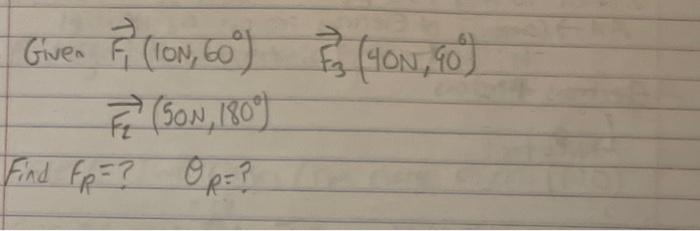 Given F₁ (10N, 60°) F₃ (40N, 90°)
F₂ (50N, 180°)
Find F_R = ? θ_R = ?